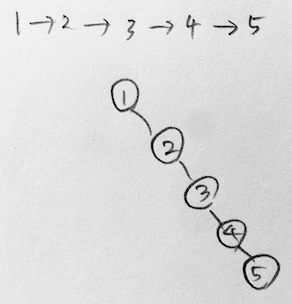 1 → 2 → 3 → 4 → 5
1
2
3
4
5